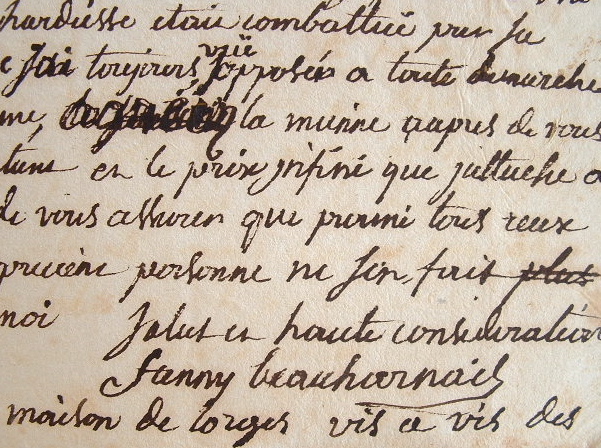 hardiesse etait combattuë par la
e j'ai toujours vuë s'opposer a toute demarche
me la mienne aupres de vous
tems en le prix infini que j'attache a
de vous assurer que parmi tous ceux
personne ne s'en fait plus
moi Salut et haute consideration
Fanny beauharnais
maison de lorges vis a vis des